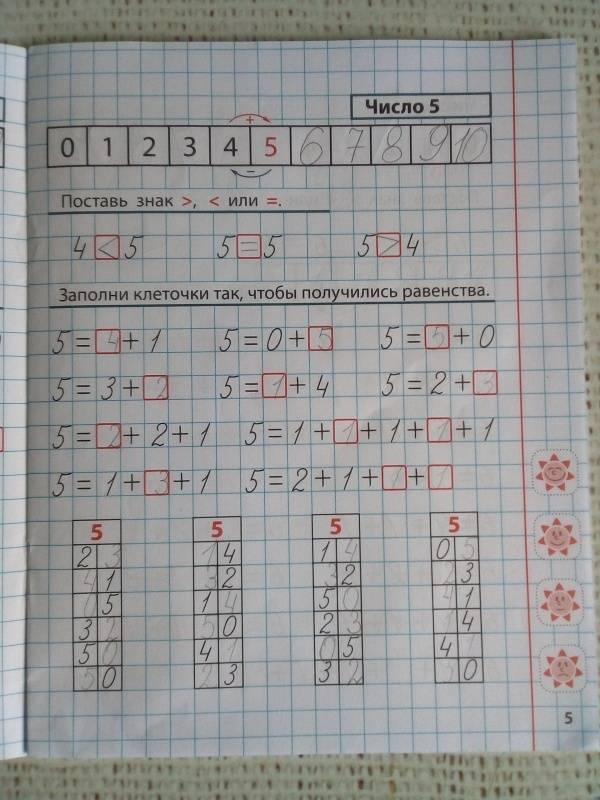 Число 5
+
0 1 2 3 4 5 6 7 8 9 10
−
Поставь знак >, < или =.
4 < 5 5 = 5 5 > 4
Заполни клеточки так, чтобы получились равенства.
5 = 4 + 1 5 = 0 + 5 5 = 5 + 0
5 = 3 + 2 5 = 1 + 4 5 = 2 + 3
5 = 2 + 2 + 1 5 = 1 + 1 + 1 + 1 + 1
5 = 1 + 3 + 1 5 = 2 + 1 + 1 + 1
5 5 5 5
2 3 1 4 1 4 0 5
4 1 3 2 3 2 2 3
0 5 1 4 5 0 4 1
3 2 5 0 2 3 1 4
5 0 4 1 0 5 4 1
5 0 2 3 3 2 5 0
5